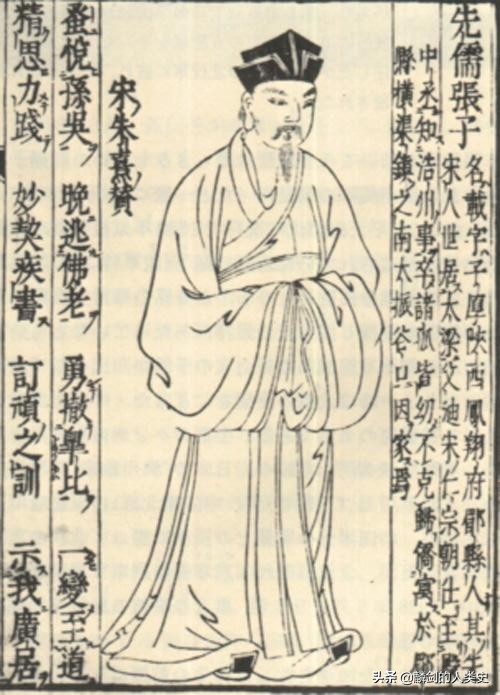 先儒張子
名載字子厚陝西鳳翔府郿縣人其先
宋人世居太梁父迪宋仁宗朝仕至殿
中丞知涪州事卒諸孤皆幼不克歸僑寓於郿
縣橫渠鎮之南太振谷口因家焉
宋朱熹贊
蚤悅孫吳 晚逃佛老 勇撤皐比 一變至道
精思力踐 妙契疾書 訂頑之訓 示我廣居
头条 @麟剑的人类史